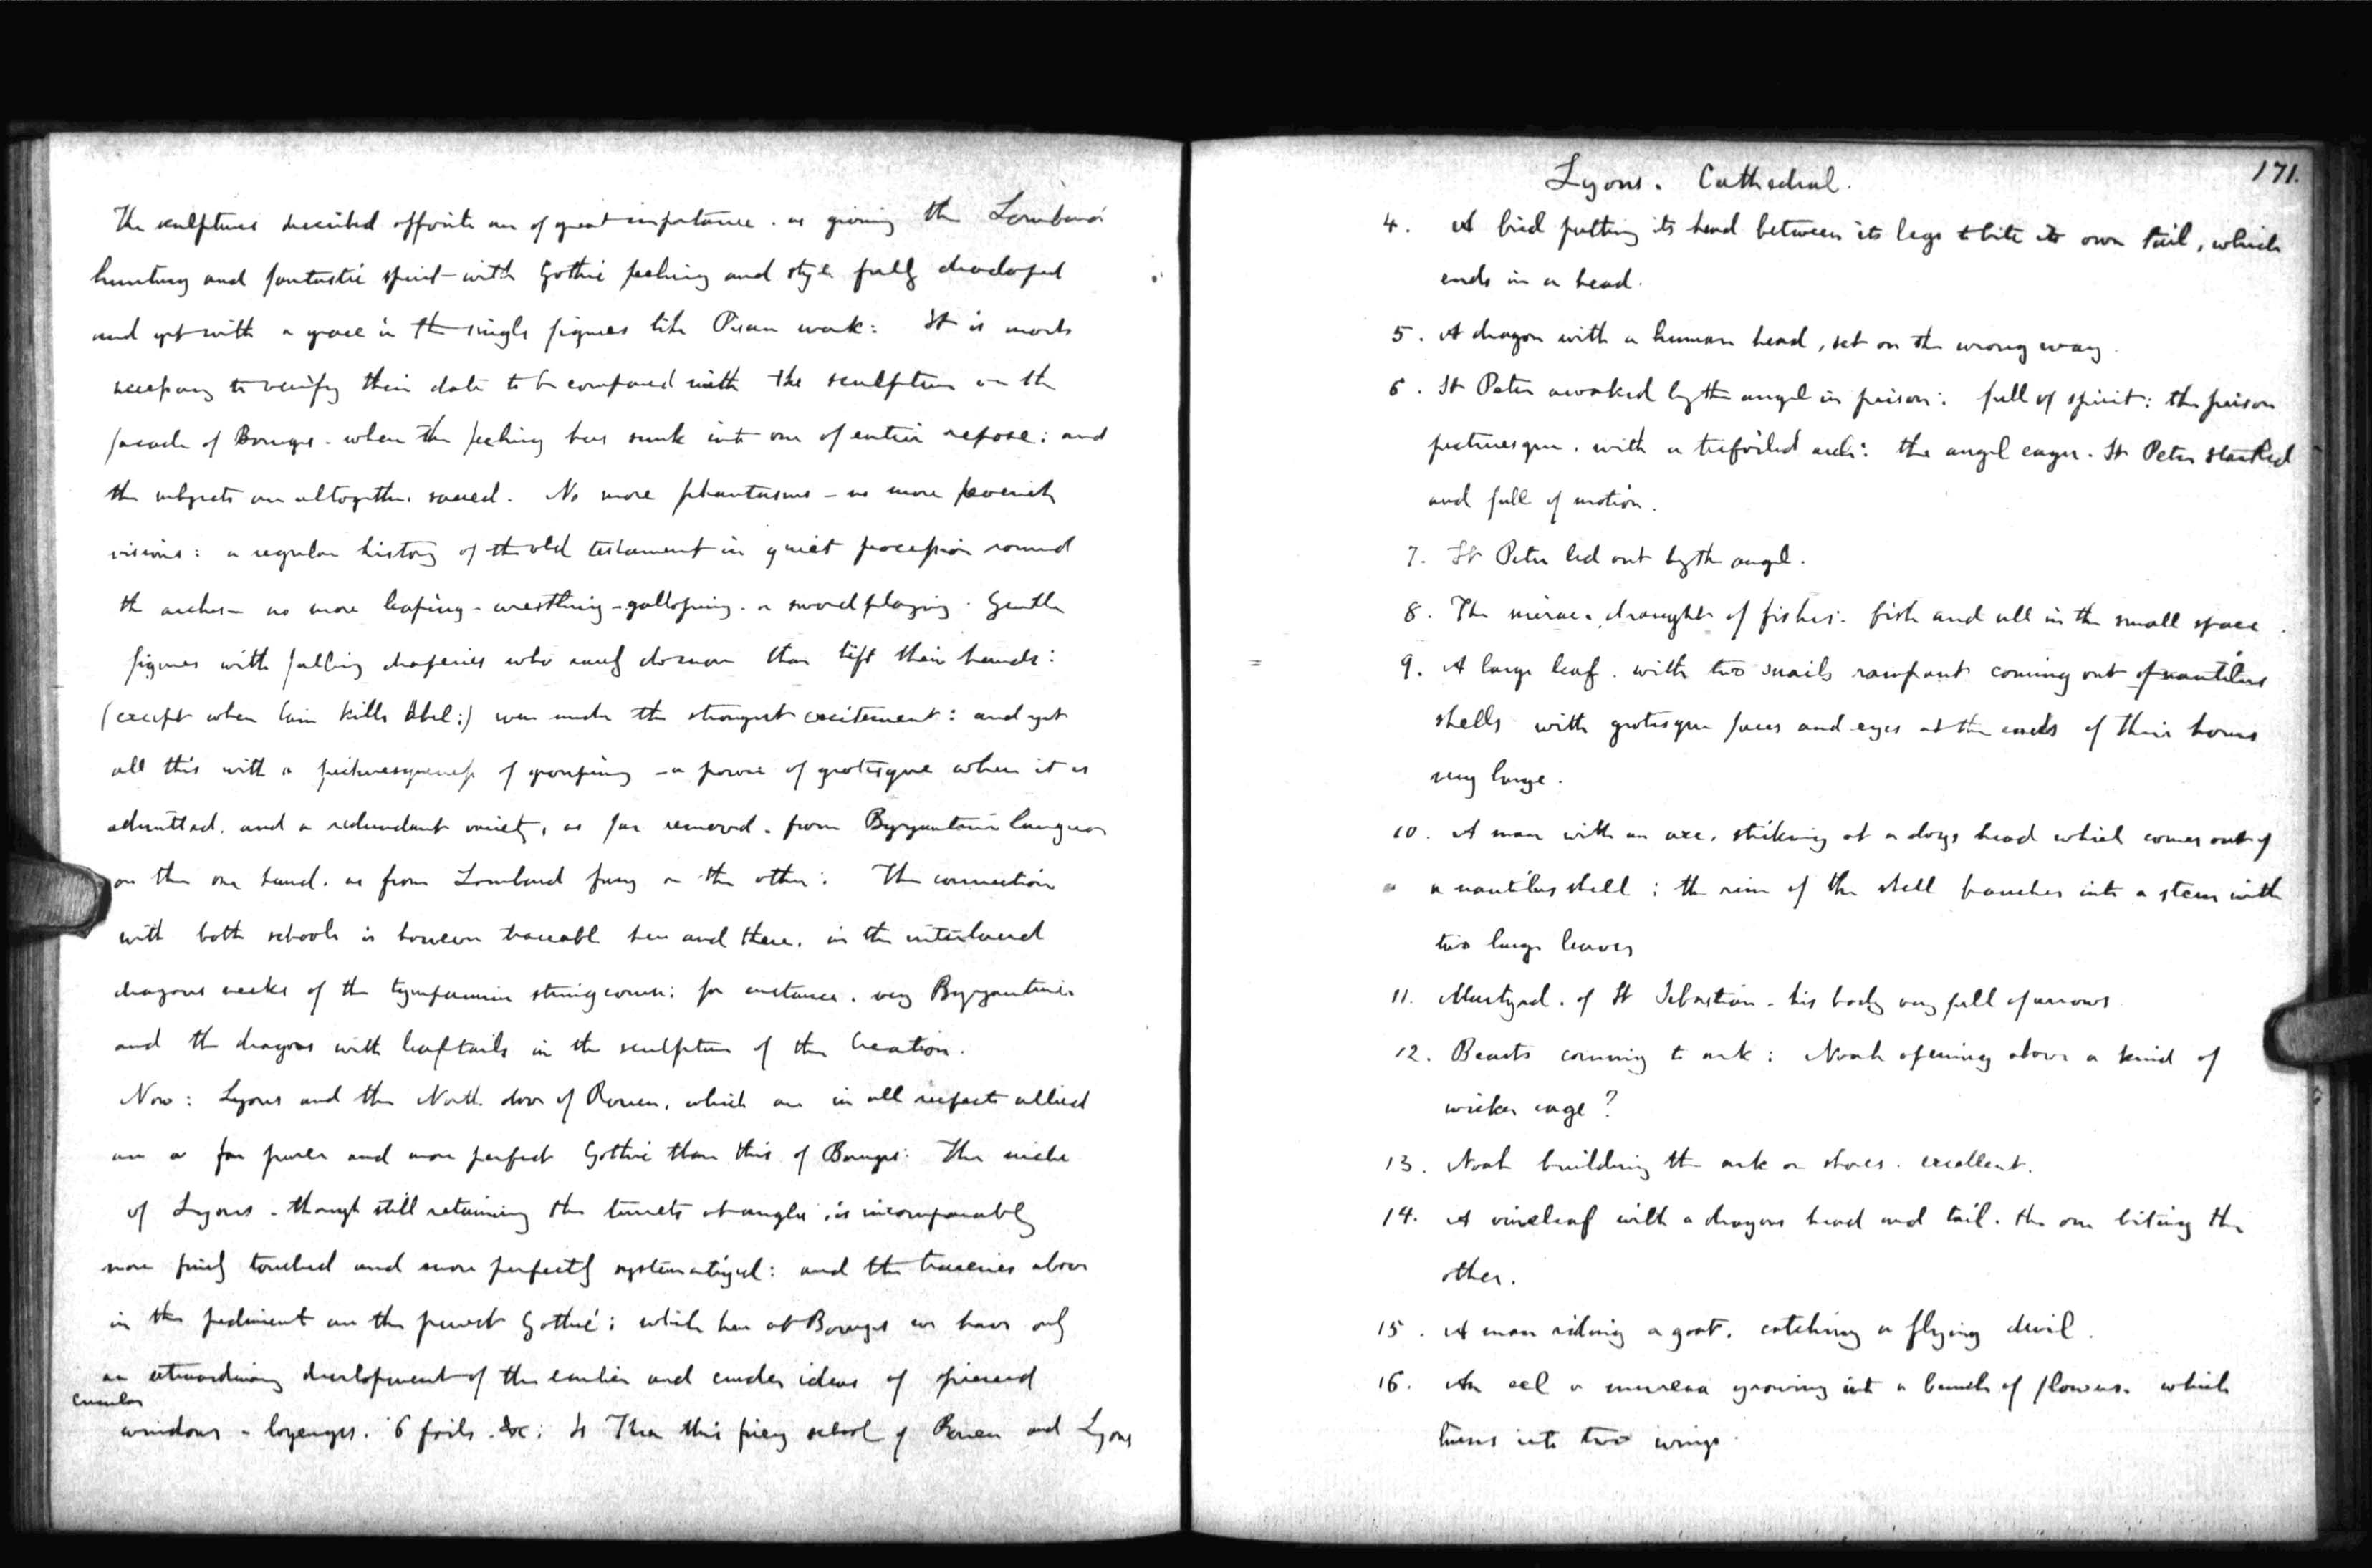 The sculptures described opposite are of great importance. as giving the Lombard
hunting and fantastic spirit with Gothic feeling and style fully developed
and yet with a grace in the single figures like Pisan work: It is most
necessary to verify their date to be compared with the sculpture on the
facade of Bourges. when the feeling has sunk into one of entire repose: and
the subjects are altogether sacred. No more phantasms - no more feverish
visions: a regular history of the old testament in quiet procession round
the arches - no more leaping - wrestling - galloping. or swordplaying. Gentle
figures with falling draperies who rarely do more than lift their hands:
(except when Cain kills Abel:) even under the strongest excitement: and yet
all this with a picturesqueness of grouping - a power of grotesque when it is
admitted. and a redundant variety, as far removed. from Byzantine languor
on the one hand. as from Lombard fury on the other: The connection
with both schools is however traceable here and there. in the interlaced
dragons necks of the tympanum stringcourse: for instance. very Byzantine
and the dragons with leaftails in the sculpture of the Creation.
Now: Lyons and the North. door of Rouen, which are in all respects allied
are a far purer and more perfect Gothic than this of Bourges: The niche
of Lyons - though still retaining the turrets at angles is incomparably
more finely touched and more perfectly systematized: and the traceries above
in the pediment are the purest Gothic: while here at Bourges we have only
an extraordinary development of the earlier and cruder ideas of pierced
circular
windows - lozenges. 6 foils. &c: Is then this fiery school of Rouen and Lyons
171.
Lyons. Cathedral.
4. A bird putting its head between its legs to bite its own tail, which
ends in a head.
5. A dragon with a human head, set on the wrong way.
6. St Peter awaked by the angel in prison: full of spirit: the prison
picturesque. with a trefoiled arch: the angel eager. St Peter startled
and full of motion.
7. St Peter led out by the angel.
8. The mirac. draught of fishes: fish and all in the small space.
9. A large leaf. with two snails rampant coming out of nautilus
shells with grotesque faces and eyes at the ends of their horns
very large.
10. A man with an axe. striking at a dogs head which comes out of
a nautilus shell: the rim of the shell branches into a stem with
two large leaves
11. Martyrd. of St Sebastian. his body very full of arrows.
12. Beasts coming to ark: Noah opening above a kind of
wicker cage?
13. Noah building the ark on shores. excellent.
14. A vineleaf with a dragons head and tail. the one biting the
other.
15. A man riding a goat. catching a flying devil.
16. An eel or murena growing into a bunch of flowers. which
turns into two wings.